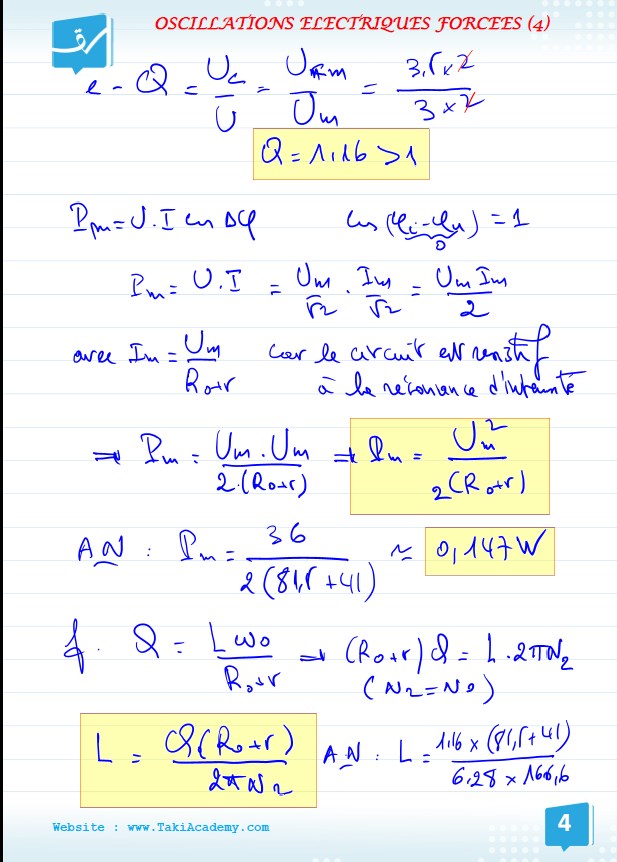 OSCILLATIONS ELECTRIQUES FORCEES (4)
e - Q = Uc/U = Ucm/Um = 3,5 x 2 / 3 x 2
Q = 1,16 > 1
Pm = U.I cos Δφ cos (φi - φu) = 1
0
Pm = U.I = Um/√2 . Im/√2 = Um Im / 2
avec Im = Um / R0+r car le circuit est résistif
à la résonance d'intensité
⇒ Pm = Um . Um / 2.(R0+r) ⇒ Pm = Um² / 2(R0+r)
A.N : Pm = 36 / 2(81,5 + 41) ≈ 0,147 W
f. Q = L ω0 / R0+r → (R0+r) Q = L . 2πN2
(N2 = N0)
L = Q.(R0+r) / 2πN2 A.N : L = 1,16 x (81,5 + 41) / 6,28 x 166,6
Website : www.TakiAcademy.com
4